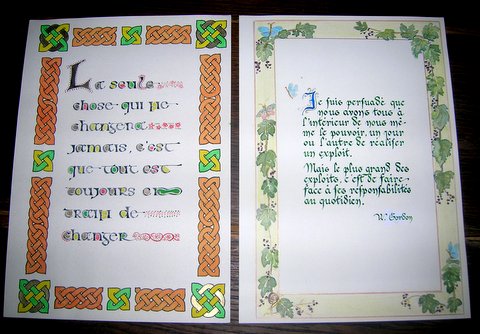 La seule
chose qui ne
changera
jamais, c'est
que tout est
toujours en
train de
changer
Je suis persuadé que
nous avons tous à
l'intérieur de nous mê-
me le pouvoir, un jour
ou l'autre de réaliser
un exploit.
Mais le plus grand des
exploits, c'est de faire
face à ses responsabilités
au quotidien.
N. Gordon